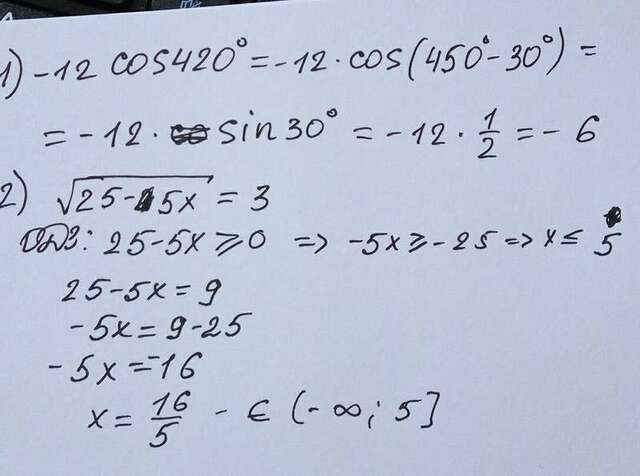 1) -12 cos420° = -12 · cos(450° - 30°) =
= -12 · sin30° = -12 · 1/2 = - 6
2) √25-5x = 3
ОДЗ: 25-5x ≥ 0 => -5x ≥ -25 => x ≤ 5
25-5x = 9
-5x = 9-25
-5x = -16
x = 16/5 - ∈ (-∞; 5]